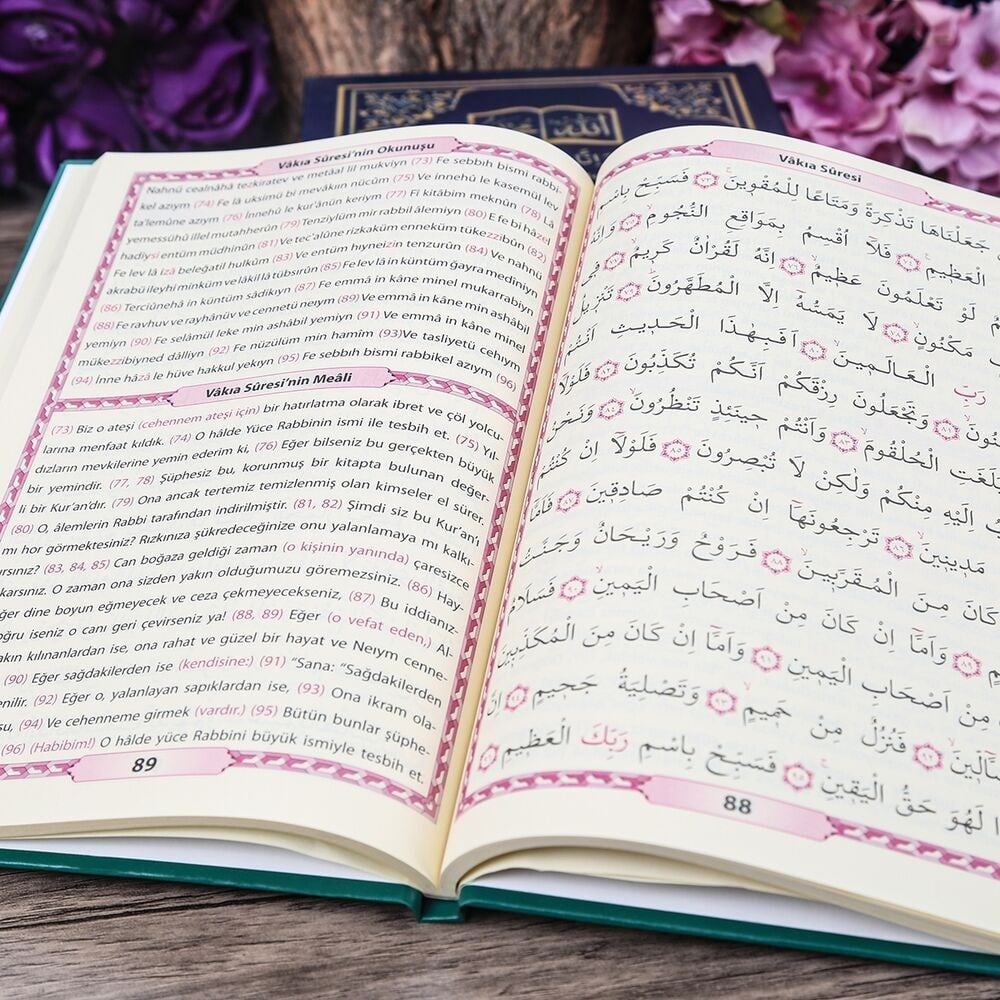 الله
Vâkıa Sûresi'nin Okunuşu
Nahnü cealnâhâ tezkiratev ve metâal lil mukviyn (73) Fe sebbıh bismi rabbi-
kel azıym (74) Fe lâ uksimü bi mevâkıın nücûm (75) Ve innehû le kasemül lev
ta'lemûne azıym (76) İnnehû le kur'ânün keriym (77) Fi kitâbim meknûn (78) Lâ
yemessühû illel mutahherûn (79) Tenziylüm mir rabbil âlemiyn (80) E fe bi hâzel
hadiysi entüm müdhinûn (81) Ve tec'alûne rizkaküm enneküm tükezzibûn (82)
Fe lev lâ izâ beleğatil hulkûm (83) Ve entüm hıyneizin tenzurûn (84) Ve nahnü
akrabü ileyhi minküm ve lâkil lâ tübsırûn (85) Fe lev lâ in küntüm ğayra mediyniyn
(86) Terciûnehâ in küntüm sâdikıyn (87) Fe emmâ in kâne minel mukarrabiyn
(88) Fe ravhuv ve rayhânüv ve cennetü neıym (89) Ve emmâ in kâne min ashâbil
yemiyn (90) Fe selâmül leke min ashâbil yemiyn (91) Ve emmâ in kâne minel
mükezzibiyned dâlliyn (92) Fe nüzülüm min hamîm (93)Ve tasliyetü cehıym
(94) İnne hâzâ le hüve hakkul yekıyn (95) Fe sebbıh bismi rabbikel azıym (96)
Vâkıa Sûresi'nin Meâli
(73) Biz o ateşi (cehennem ateşi için) bir hatırlatma olarak ibret ve çöl yolcu-
larına menfaat kıldık. (74) O hâlde Yüce Rabbinin ismi ile tesbih et. (75) Yıl-
dızların mevkilerine yemin ederim ki, (76) Eğer bilseniz bu gerçekten büyük
bir yemindir. (77, 78) Şüphesiz bu, korunmuş bir kitapta bulunan değer-
li bir Kur'an'dır. (79) Ona ancak tertemiz temizlenmiş olan kimseler el sürer.
(80) O, âlemlerin Rabbi tarafından indirilmiştir. (81, 82) Şimdi siz bu Kur'an'ı
mı hor görmektesiniz? Rızkınıza şükredeceğinize onu yalanlamaya mı kalkı-
ırsınız? (83, 84, 85) Can boğaza geldiği zaman (o kişinin yanında) çaresizce
akarsınız. O zaman ona sizden yakın olduğumuzu göremezsiniz. (86) Hay-
ğer dine boyun eğmeyecek ve ceza çekmeyecekseniz, (87) Bu iddianız-
oğru iseniz o canı geri çevirseniz ya! (88, 89) Eğer (o vefat eden,) Al-
akın kılınanlardan ise, ona rahat ve güzel bir hayat ve Neıym cenne-
(90) Eğer sağdakilerden ise (kendisine:) (91) “Sana: “Sağdakilerden
enilir. (92) Eğer o, yalanlayan sapıklardan ise, (93) Ona ikram ola-
su, (94) Ve cehenneme girmek (vardır.) (95) Bütün bunlar şüphe-
(96) (Habibim!) O hâlde yüce Rabbini büyük ismiyle tesbih et.
89
Vâkıa Sûresi
جَعَلْنَاهَا تَذْكِرَةً وَمَتَاعًا لِلْمُقْوٖينَۚ ﴿٧٣﴾ فَسَبِّحْ بِاسْمِ
الْعَظٖيمِ ﴿٧٤﴾ فَلَٓا اُقْسِمُ بِمَوَاقِعِ النُّجُومِۙ ﴿٧٥﴾ وَاِنَّهُ
لَوْ تَعْلَمُونَ عَظٖيمٌۙ ﴿٧٦﴾ اِنَّهُ لَقُرْاٰنٌ كَرٖيمٌۙ ﴿٧٧﴾ فٖي
مَكْنُونٍۙ ﴿٧٨﴾ لَا يَمَسُّهُٓ اِلَّا الْمُطَهَّرُونَۜ ﴿٧٩﴾ تَنْزٖيلٌ
رَبِّ الْعَالَمٖينَ ﴿٨٠﴾ اَفَبِهٰذَا الْحَدٖيثِ اَنْتُمْ
﴿٨١﴾ وَتَجْعَلُونَ رِزْقَكُمْ اَنَّكُمْ تُكَذِّبُونَ ﴿٨٢﴾ فَلَوْلَٓا
بَلَغَتِ الْحُلْقُومَۙ ﴿٨٣﴾ وَاَنْتُمْ حٖينَئِذٍ تَنْظُرُونَۙ ﴿٨٤﴾ وَنَحْنُ
اِلَيْهِ مِنْكُمْ وَلٰكِنْ لَا تُبْصِرُونَ ﴿٨٥﴾ فَلَوْلَٓا اِنْ كُنْتُمْ
مَدٖينٖينَۙ ﴿٨٦﴾ تَرْجِعُونَهَٓا اِنْ كُنْتُمْ صَادِقٖينَ ﴿٨٧﴾ فَاَمَّٓا
كَانَ مِنَ الْمُقَرَّبٖينَۙ ﴿٨٨﴾ فَرَوْحٌ وَرَيْحَانٌ وَجَنَّتُ
﴿٨٩﴾ وَاَمَّٓا اِنْ كَانَ مِنْ اَصْحَابِ الْيَمٖينِۙ ﴿٩٠﴾ فَسَلَامٌ
مِنْ اَصْحَابِ الْيَمٖينِ ﴿٩١﴾ وَاَمَّٓا اِنْ كَانَ مِنَ الْمُكَذِّبٖينَ
﴿٩٢﴾ فَنُزُلٌ مِنْ حَمٖيمٍۙ ﴿٩٣﴾ وَتَصْلِيَةُ جَحٖيمٍ ﴿٩٤﴾ اِنَّ
لَهُوَ حَقُّ الْيَقٖينِۚ ﴿٩٥﴾ فَسَبِّحْ بِاسْمِ رَبِّكَ الْعَظٖيمِ ﴿٩٦﴾
88